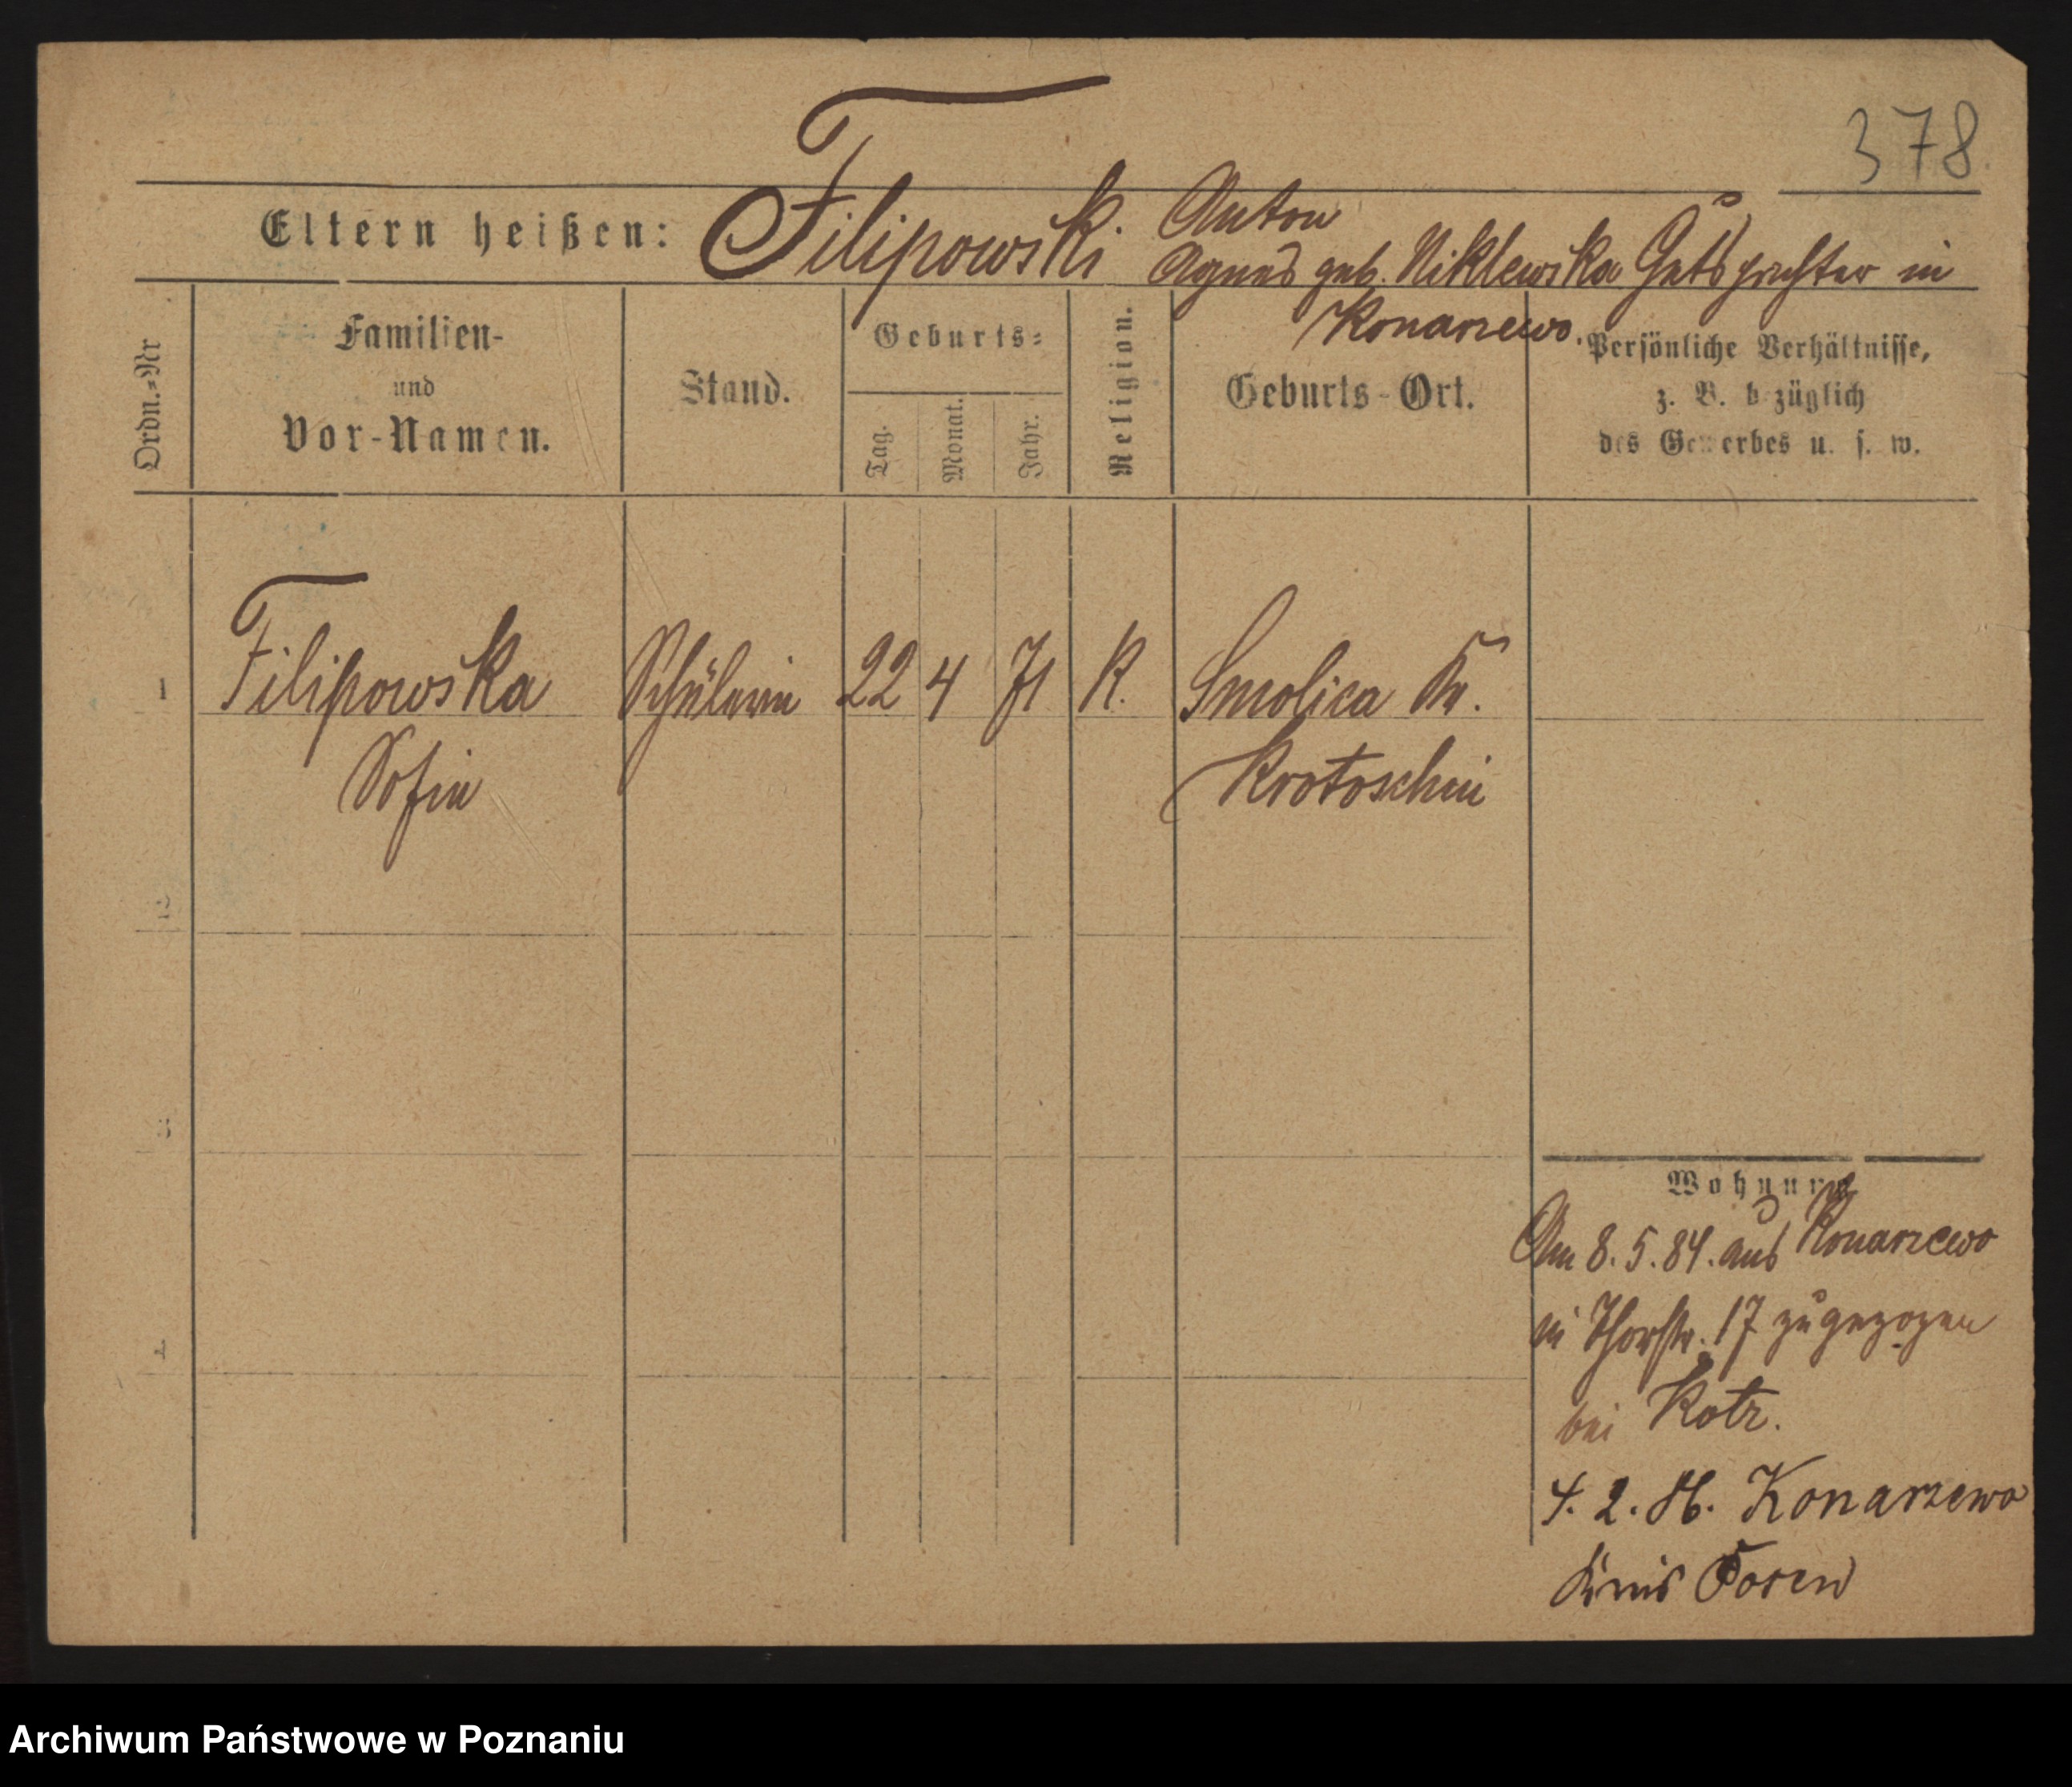 378.
Eltern heißen: Filipowski Anton
Agnes geb. Niklewska Gutspächter in
Konarzewo.
Ordn.=Nr
Familien-
und
Vor-Namen.
Stand.
Geburts=
Tag.
Monat.
Jahr.
Religion.
Geburts-Ort.
Persönliche Verhältnisse,
z. B. bezüglich
des Gewerbes u. s. w.
1 Filipowska Schülerin 22 4 71 K. Smolica Kr.
Sofie Krotoschin
2
3
4
Wohnung
Am 8.5.84. aus Konarzewo
in Thorstr. 17 zugezogen
bei Kotz.
4. 2. 86. Konarzewo
Kreis Posen
Archiwum Państwowe w Poznaniu